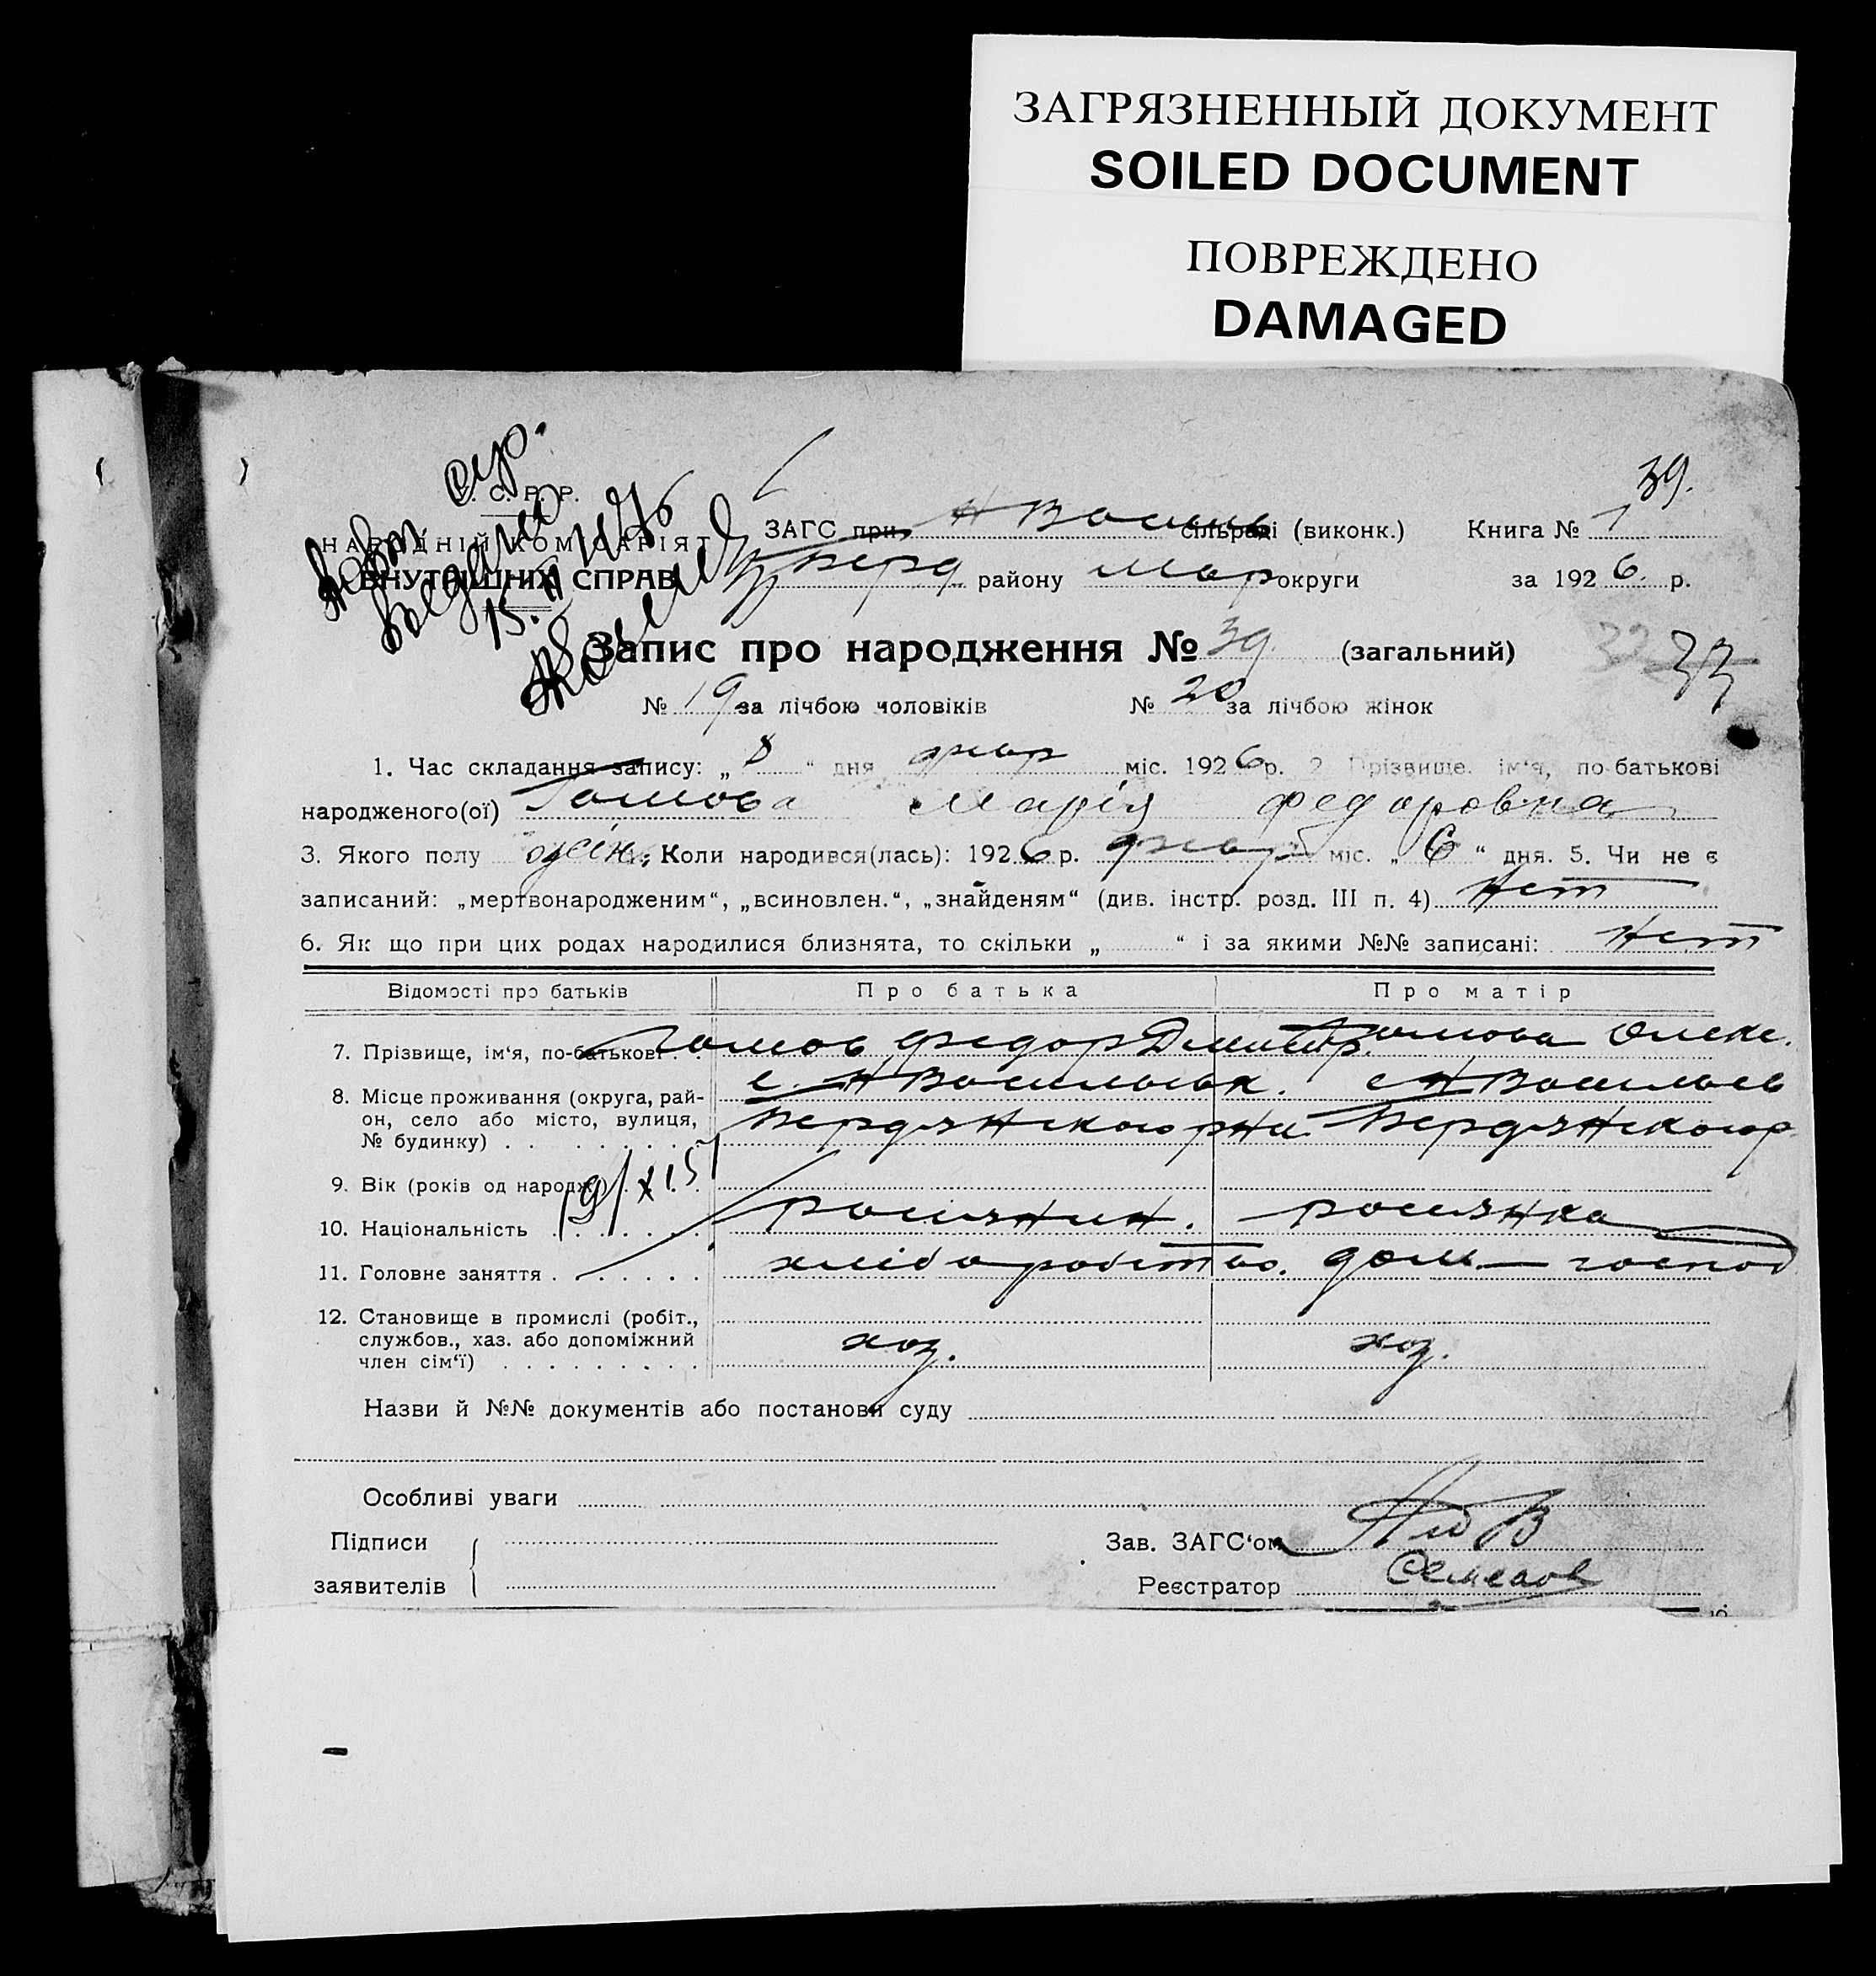 ЗАГРЯЗНЕННЫЙ ДОКУМЕНТ
SOILED DOCUMENT
ПОВРЕЖДЕНО
DAMAGED
39.
С. Р. Р.
НАРОДНІЙ КОМІСАРІЯТ
ВНУТРІШНІХ СПРАВ
ЗАГС при Н Василь сільраді (виконк.) Книга № 1
Берд району Мар округи за 1926 р.
Запис про народження № 39 (загальний)
33
№ 19 за лічбою чоловіків № 20 за лічбою жінок
1. Час складання запису: „8“ дня міс. 1926 р. 2 Прізвище, ім‘я, по батькові
народженого(ої) Марія Федоровна
3. Якого полу жін. Коли народився(лась): 1926 р. міс. „6“ дня. 5. Чи не є
записаний: „мертвонародженим“, „всиновлен.“, „знайденям“ (див. інстр. розд. III п. 4) Нет
6. Як що при цих родах народилися близнята, то скільки „ “ і за якими №№ записані: Нет
Відомості про батьків Про батька Про матір
7. Прізвище, ім‘я, по-батькові Федор Дмитр. Олекс.
8. Місце проживання (округа, район, с. Н Васильевк. с Н Васильев
он, село або місто, вулиця, Бердянского рна Бердянского р
№ будинку)
9. Вік (років од народж.)
19/XI 51
10. Національність росіянин. росіянка
11. Головне заняття хліборобство. дом — господ
12. Становище в промислі (робіт.,
службов., хаз. або допоміжний хоз. хоз.
член сім‘ї)
Назви й №№ документів або постанови суду
Особливі уваги
Підписи
заявителів
Зав. ЗАГС‘ом
Реєстратор